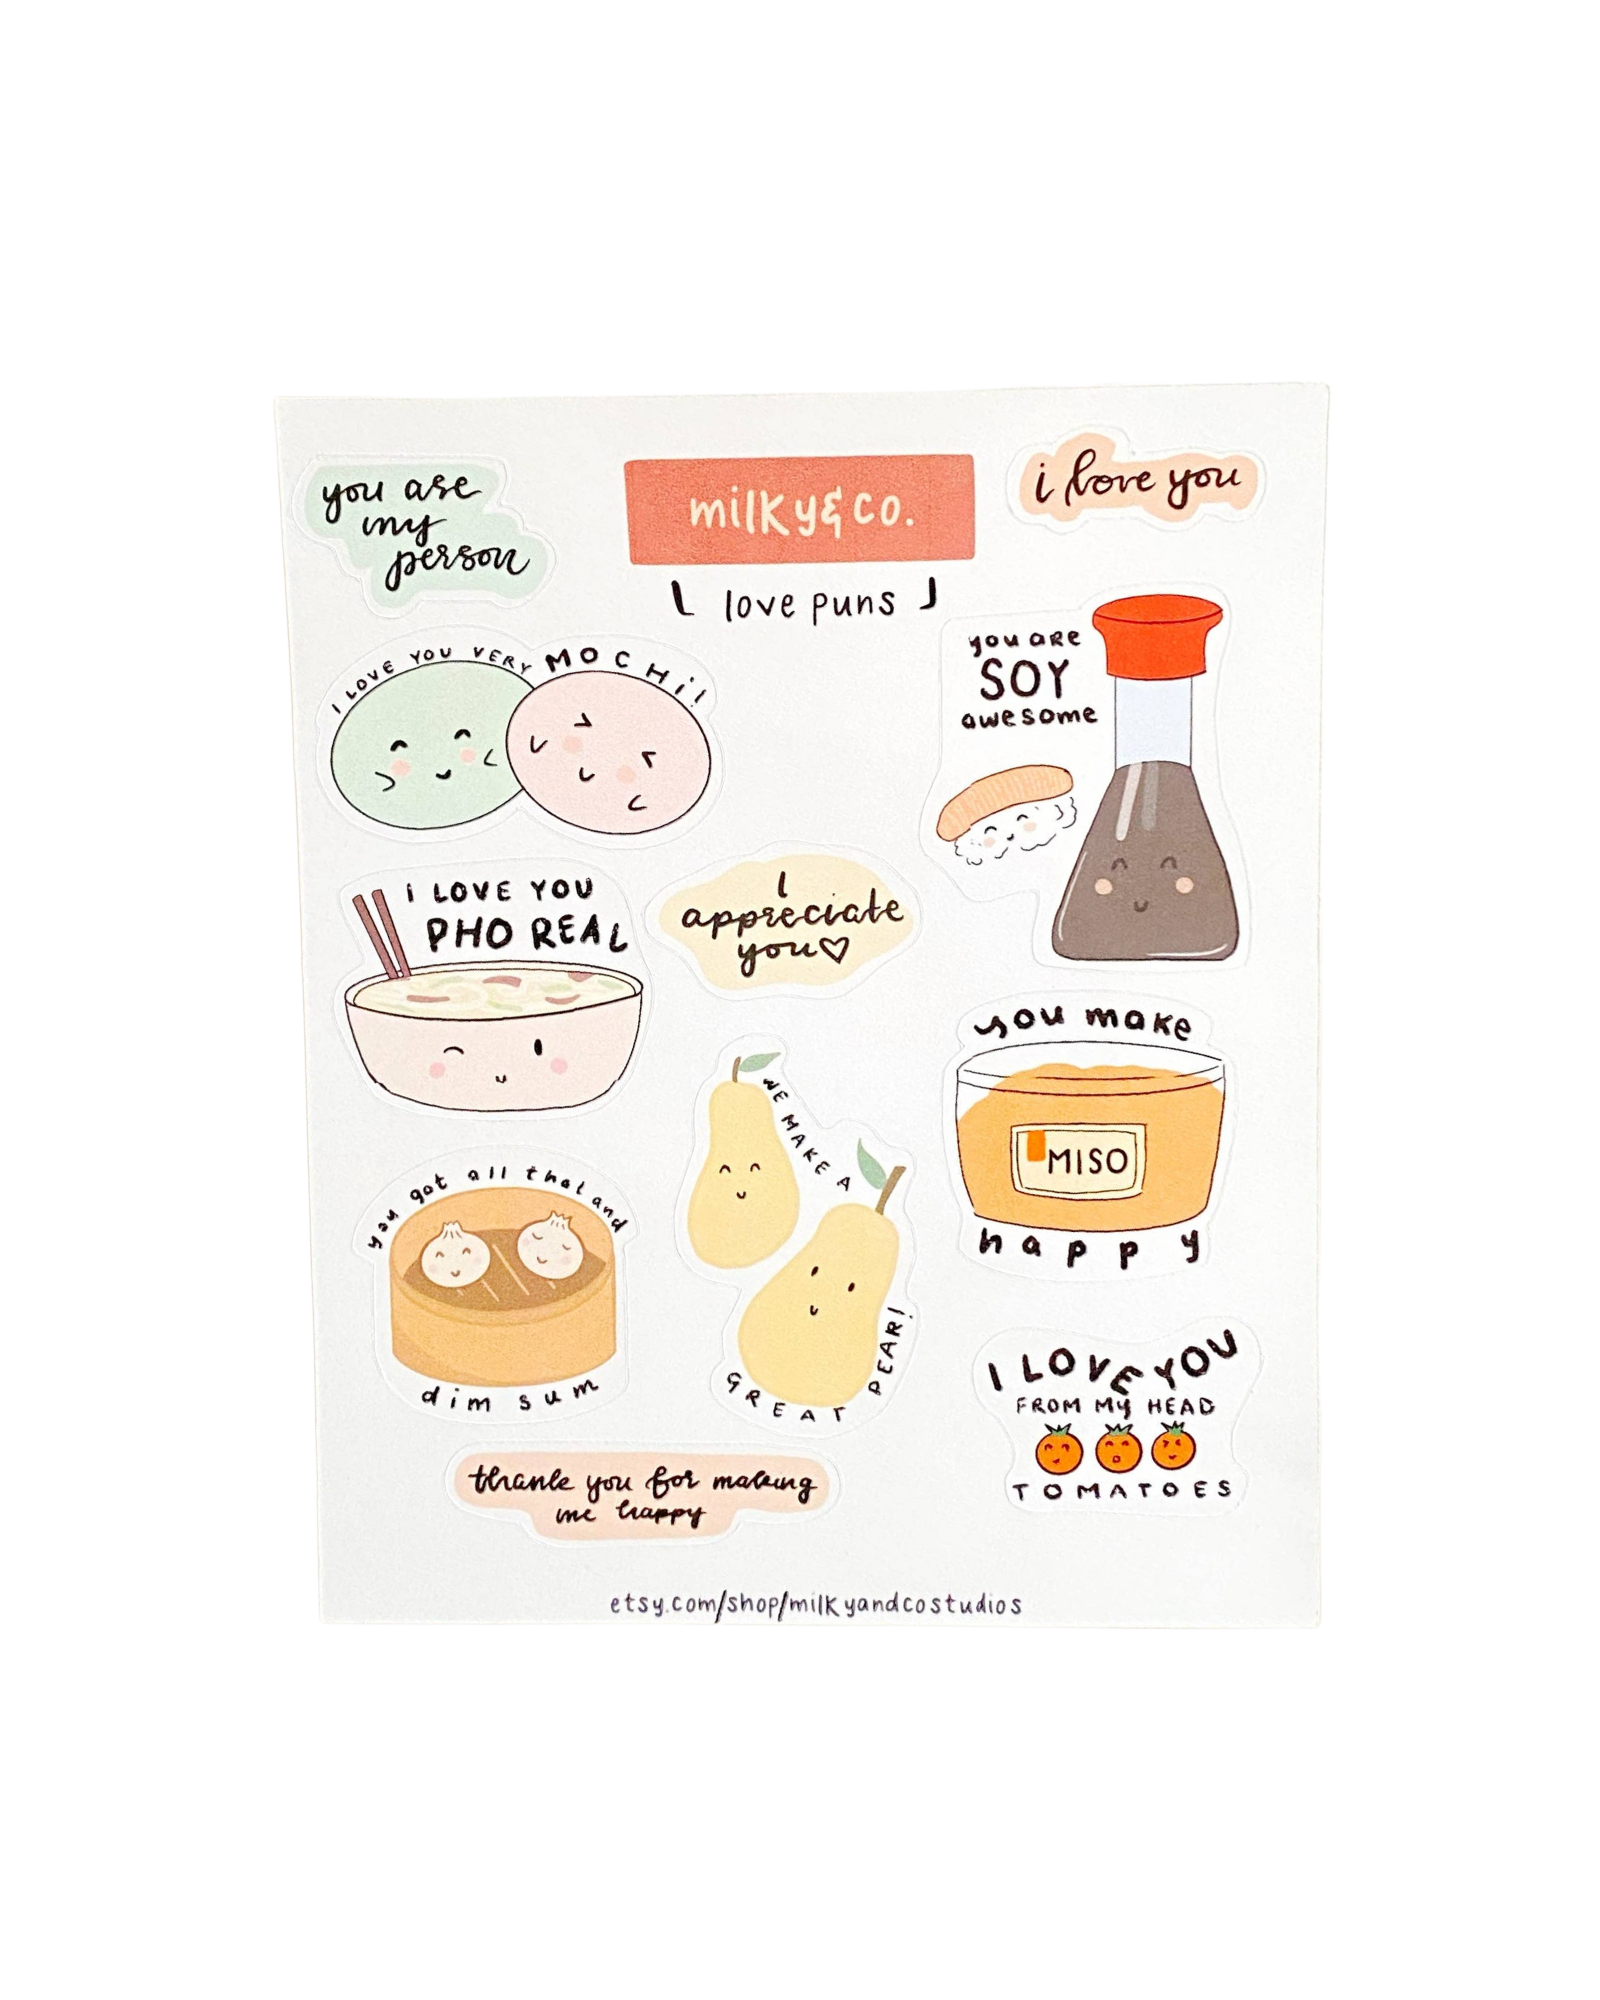 you are
my
person
milky&co.
love puns
i love you
I LOVE YOU VERY MOCHi!
you are
SOY
awesome
i LOVE YOU
PHO REAL
I
appreciate
you♡
you make
MISO
happy
WE MAKE A
GREAT PEAR!
you got all that and
dim sum
I LOVE YOU
FROM My HEAD
TOMATOES
thank you for making
me happy
etsy.com/shop/milkyandcostudios